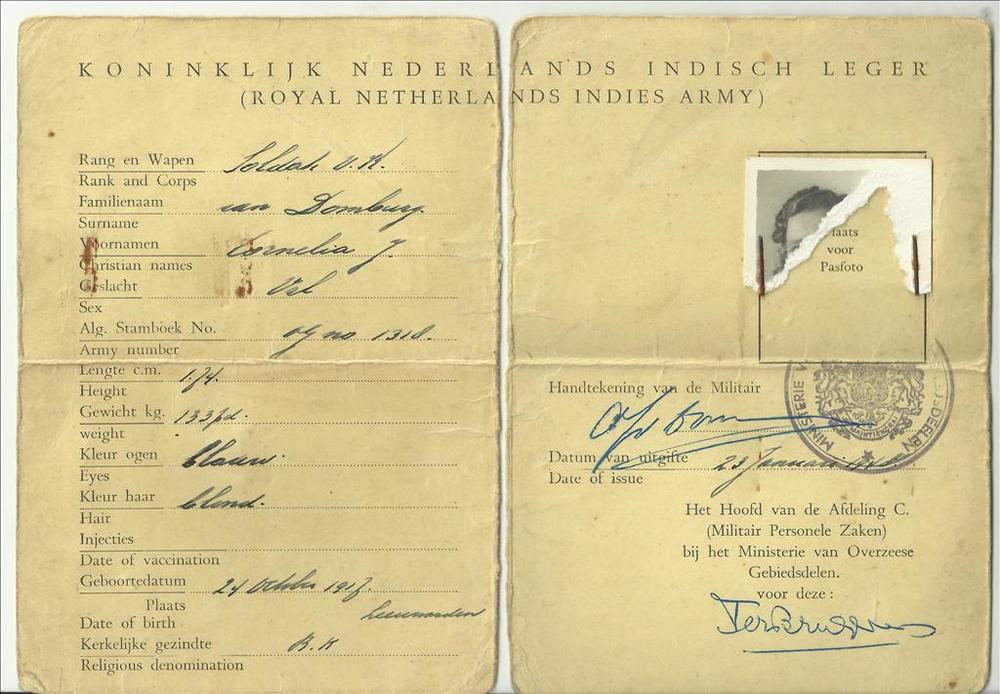 KONINKLIJK NEDERLANDS INDISCH LEGER
(ROYAL NETHERLANDS INDIES ARMY)
Rang en Wapen Soldaat V.K.
Rank and Corps
Familienaam van Domburg.
Surname
Voornamen Cornelia J.
Christian names
Geslacht Vrl
Sex
Alg. Stamboek No.
Army number
Lengte c.m. 1.74.
Height
Gewicht kg. 133 pd.
weight
Kleur ogen blauw.
Eyes
Kleur haar blond.
Hair
Injecties
Date of vaccination
Geboortedatum 24 October 1917.
Plaats Leeuwarden
Date of birth
Kerkelijke gezindte R.K
Religious denomination
laats
voor
Pasfoto
Handtekening van de Militair
MINISTERIE V DEELEN
Datum van uitgifte 23 Januari
Date of issue
Het Hoofd van de Afdeling C.
(Militair Personele Zaken)
bij het Ministerie van Overzeese
Gebiedsdelen.
voor deze :